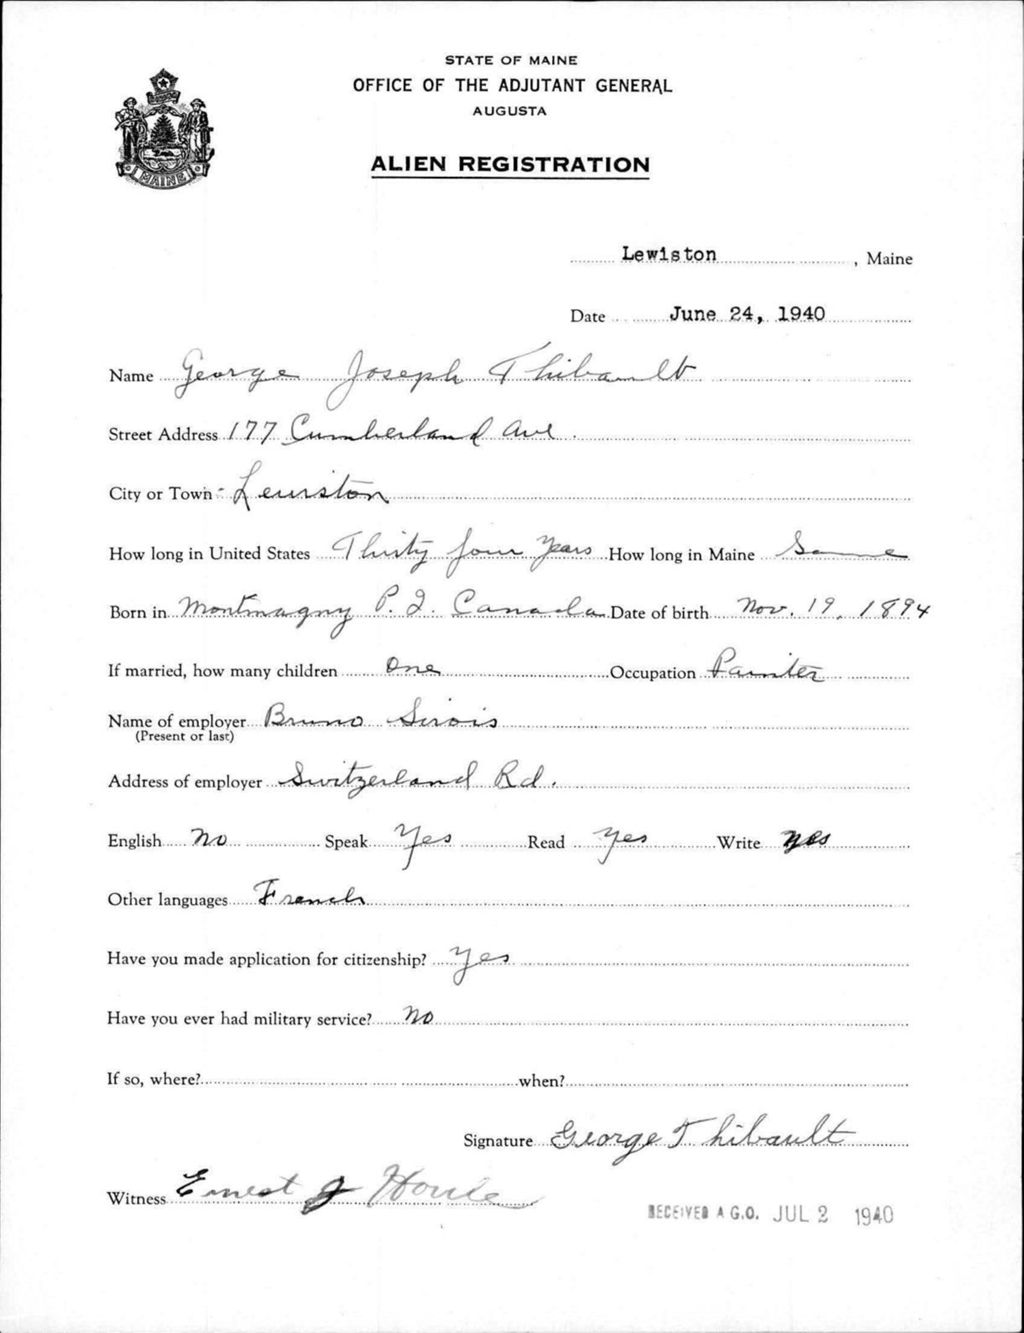 STATE OF MAINE
OFFICE OF THE ADJUTANT GENERAL
AUGUSTA
ALIEN REGISTRATION
MAINE
Lewiston, Maine
Date June 24, 1940
Name George Joseph Thibault
Street Address 177 Cumberland Ave
City or Town Lewiston
How long in United States Thirty four years How long in Maine Same
Born in Montmagny P. Q. Canada Date of birth Nov. 19, 1894
If married, how many children One Occupation Painter
Name of employer Bruno Sirois
(Present or last)
Address of employer Switzerland Rd.
English No Speak Yes Read Yes Write Yes
Other languages French
Have you made application for citizenship? Yes
Have you ever had military service? No
If so, where? when?
Signature George Thibault
Witness Ernest J Houle
RECEIVED A.G.O. JUL 2 1940